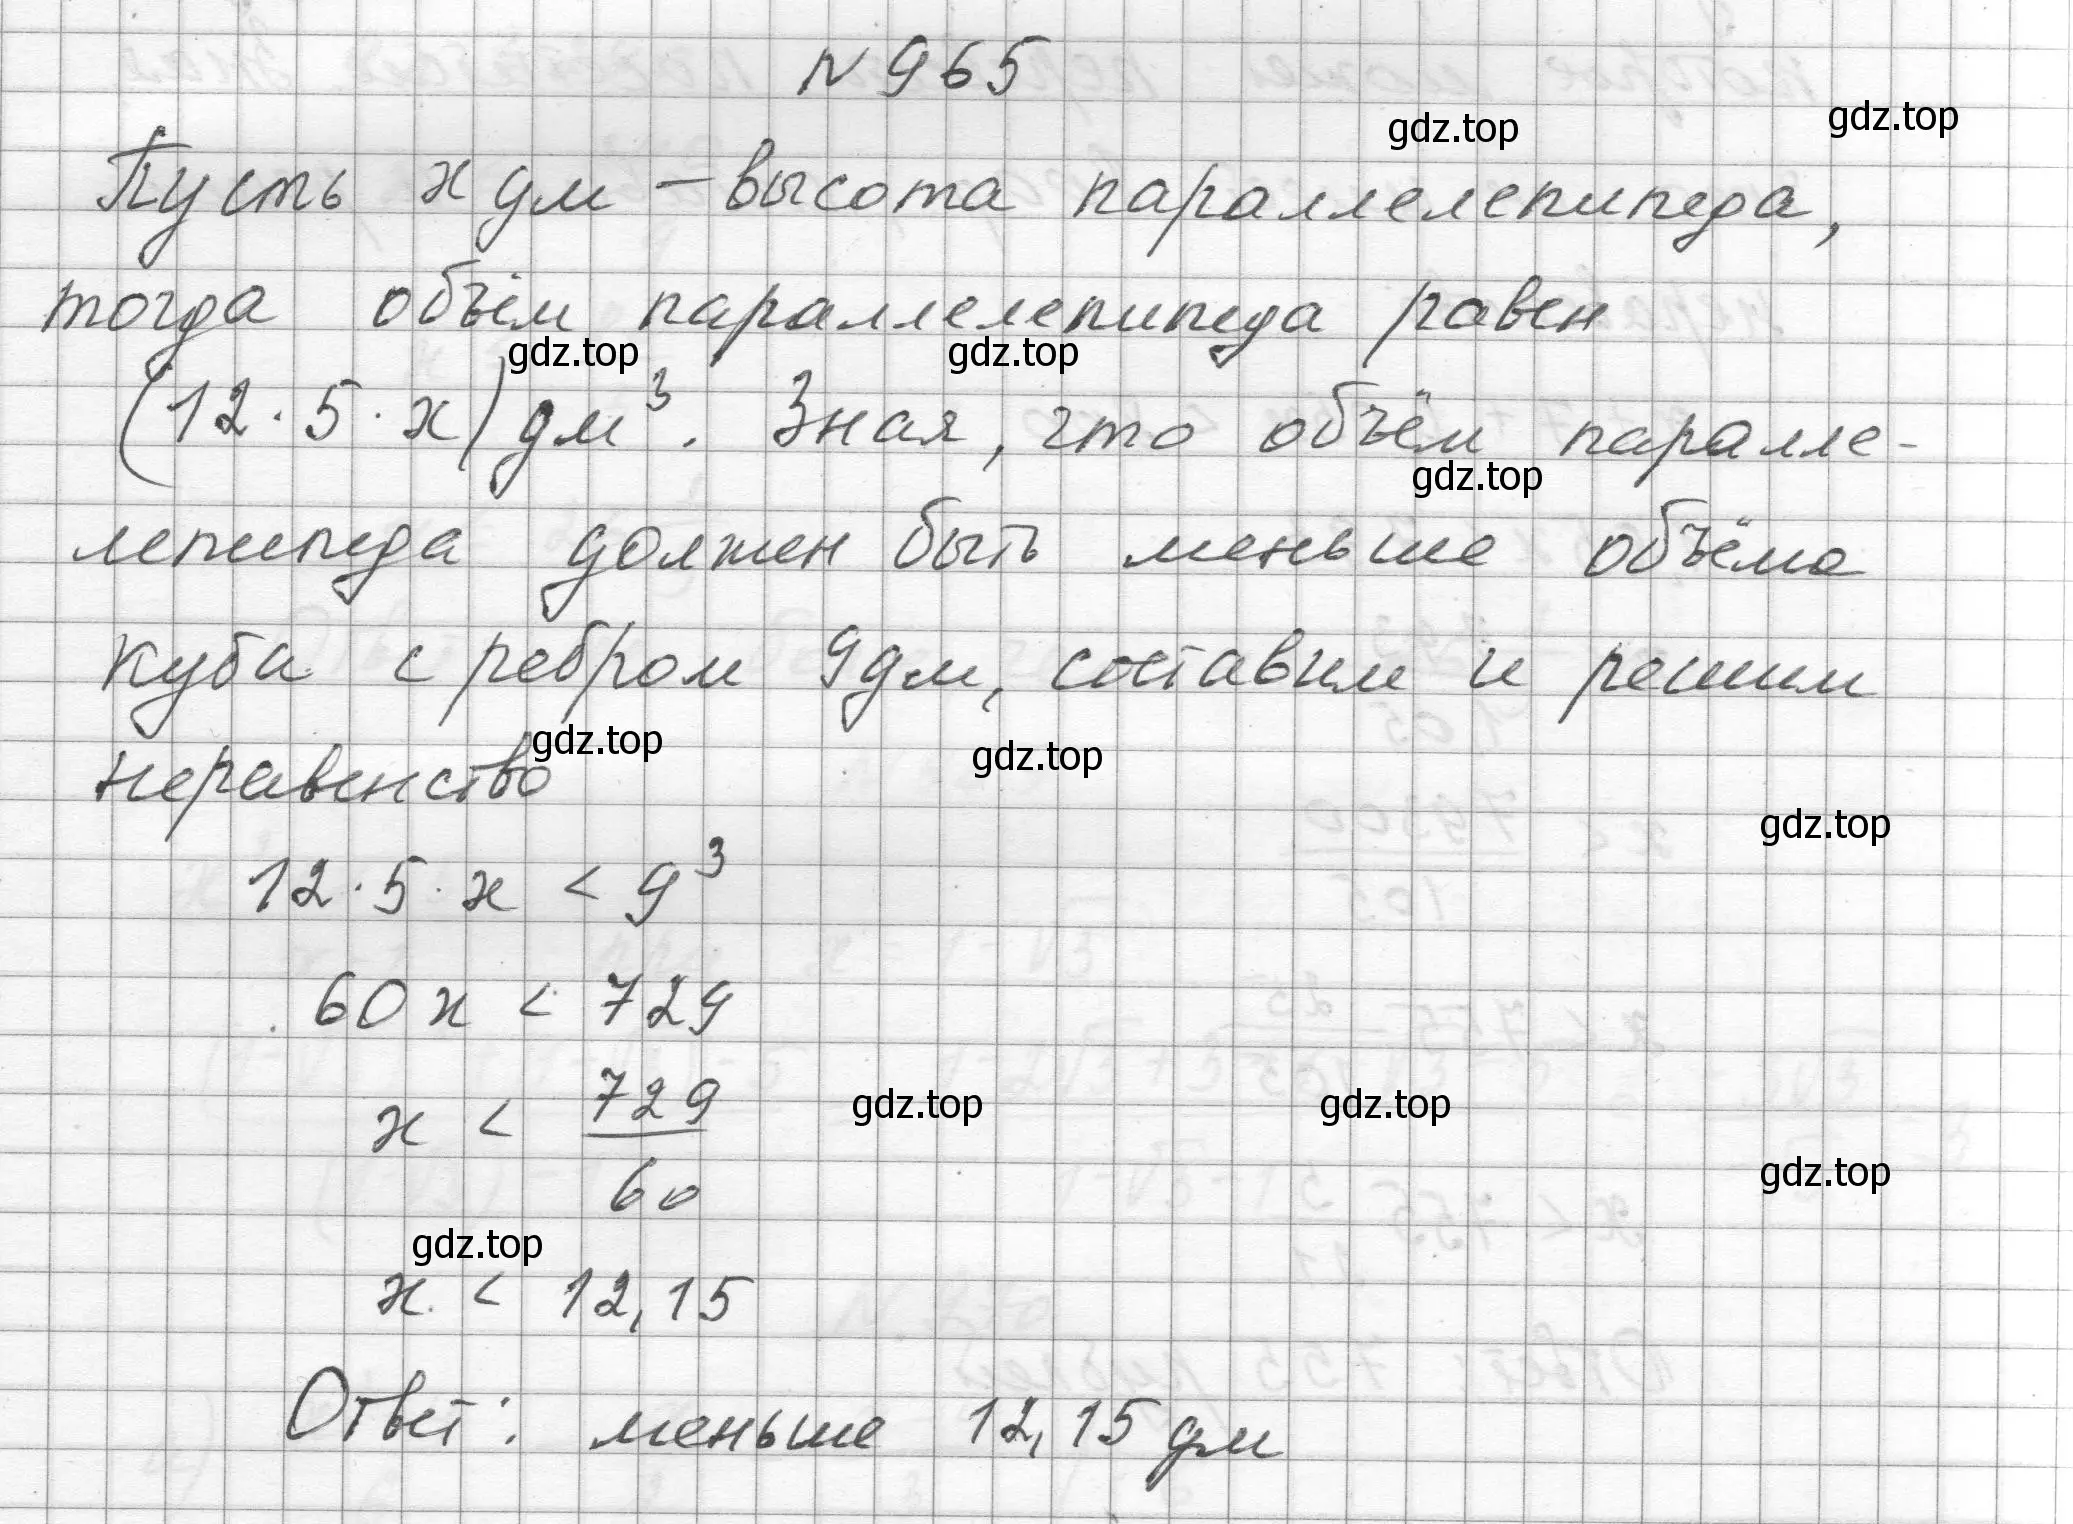 № 965
gdz.top
gdz.top
Пусть x дм – высота параллелепипеда,
тогда объём параллелепипеда равен
gdz.top
gdz.top
(12 · 5 · x) дм³. Зная, что объём паралле-
gdz.top
лепипеда должен быть меньше объёма
куба с ребром 9 дм, составим и решим
gdz.top
gdz.top
неравенство
gdz.top
12 · 5 · x < 9³
60x < 729
x < 729/60
gdz.top
gdz.top
gdz.top
gdz.top
x < 12,15
Ответ: меньше 12,15 дм